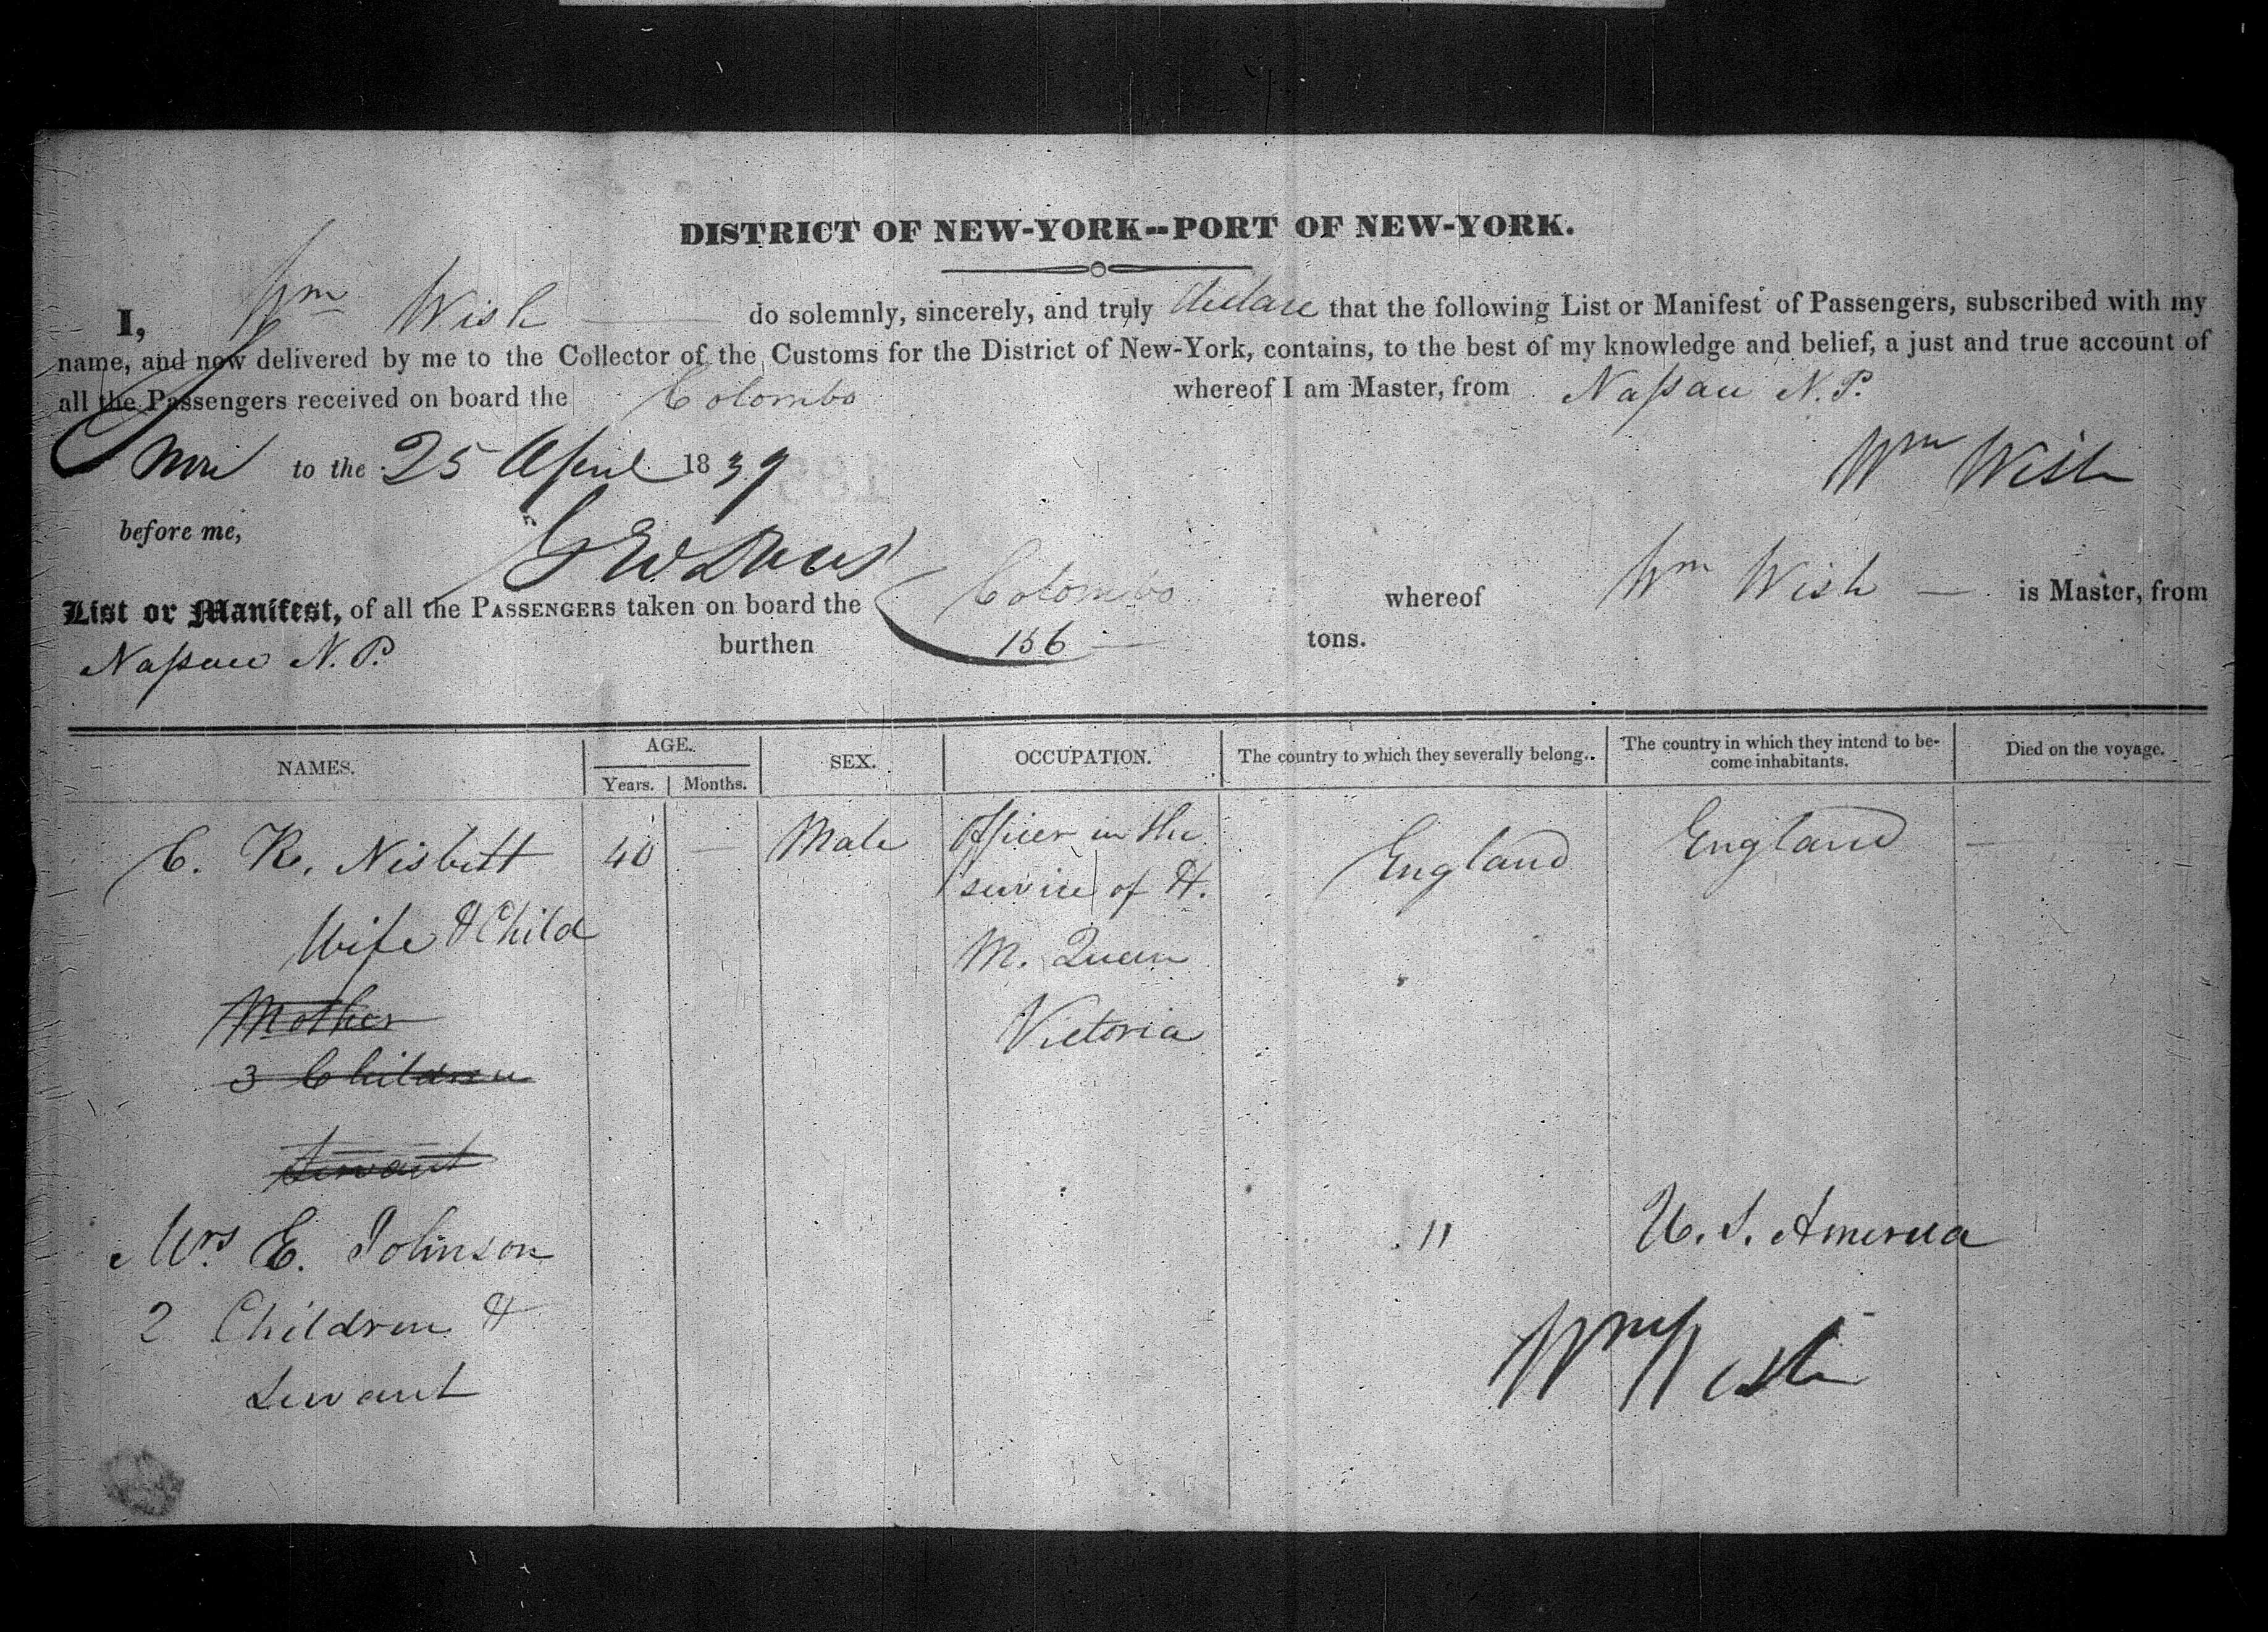 DISTRICT OF NEW-YORK--PORT OF NEW-YORK.
I, Wm Wish do solemnly, sincerely, and truly declare that the following List or Manifest of Passengers, subscribed with my
name, and now delivered by me to the Collector of the Customs for the District of New-York, contains, to the best of my knowledge and belief, a just and true account of
all the Passengers received on board the Colombo whereof I am Master, from Nassau N.P.
to the 25 April 1839
Wm Wish
before me,
List or Manifest, of all the PASSENGERS taken on board the Colombo whereof Wm Wish is Master, from
Nassau N.P. burthen 156 tons.
NAMES. AGE. SEX. OCCUPATION. The country to which they severally belong. The country in which they intend to be-
come inhabitants. Died on the voyage.
Years. Months.
C. R. Nisbitt 40 — Male Officer in the England England —
service of H.
Wife & Child M. Queen
Mother Victoria
3 Children
Servant
Mrs E. Johnson " U. S. America
2 Children &
Servant
Wm Wish